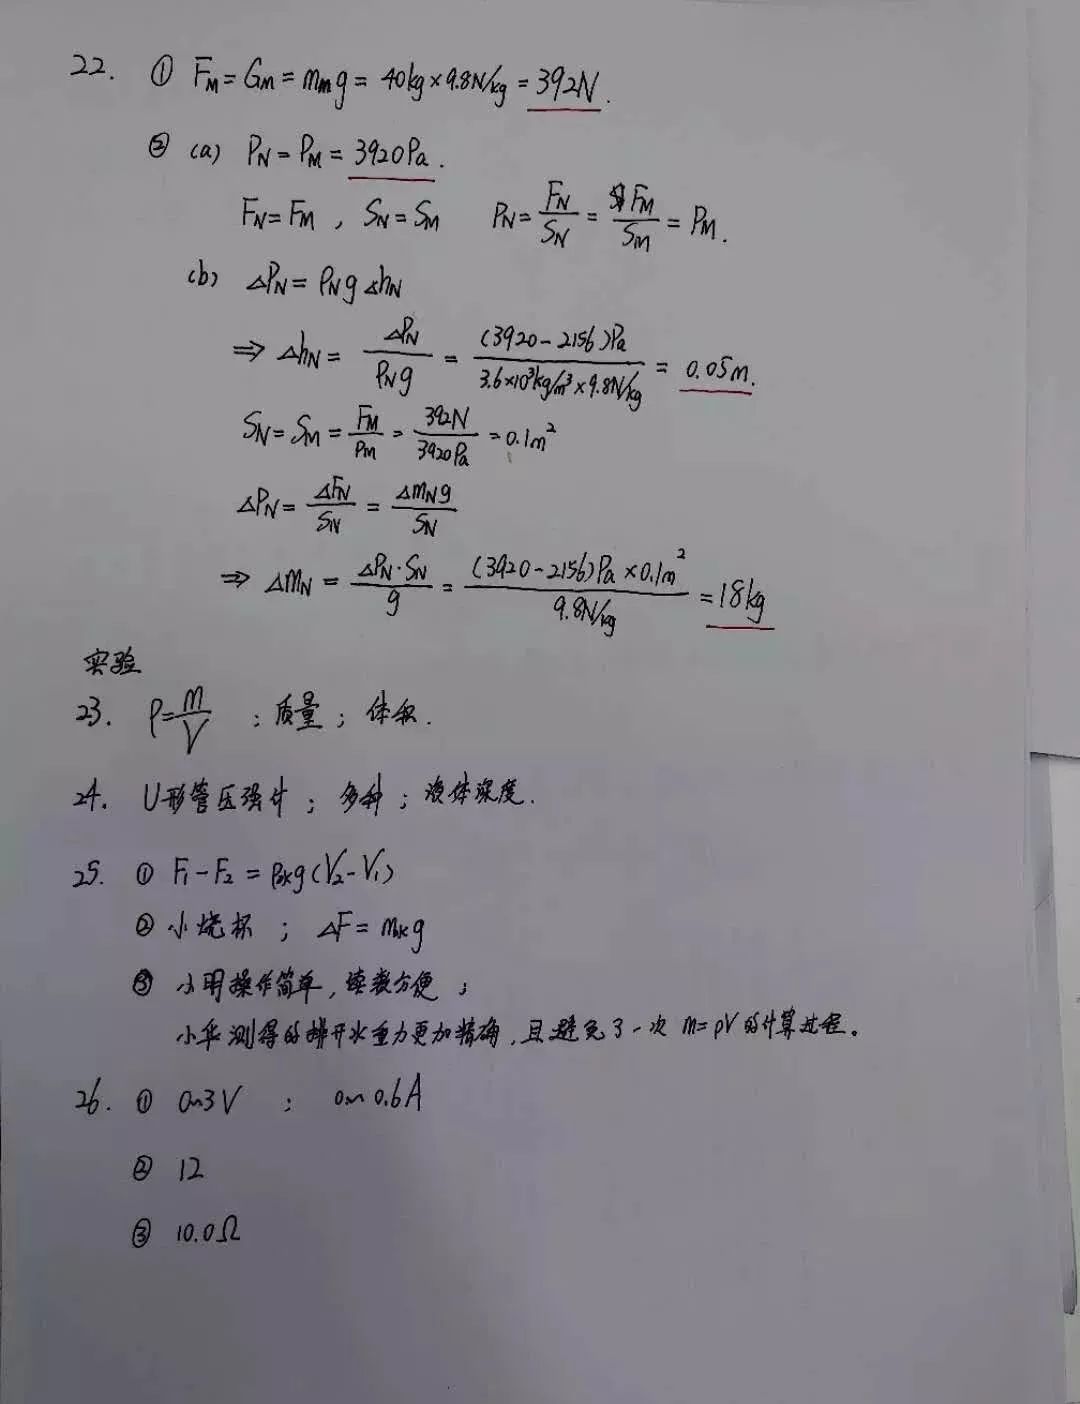 22. ① F_M = G_M = m_M g = 40kg×9.8N/kg = 392N.
② (a) P_N = P_M = 3920Pa.
F_N = F_M , S_N = S_M P_N = F_N/S_N = F_M/S_M = P_M.
(b) △P_N = ρ_N g △h_N
⇒ △h_N = △P_N/(ρ_N g) = (3920-2156)Pa/(3.6×10³kg/m³×9.8N/kg) = 0.05m.
S_N = S_M = F_M/P_M = 392N/3920Pa = 0.1m²
△P_N = △F_N/S_N = △m_N g/S_N
⇒ △m_N = △P_N·S_N/g = (3920-2156)Pa×0.1m²/(9.8N/kg) = 18kg
实验
23. ρ=m/V ; 质量 ; 体积.
24. U形管压强计 ; 多种 ; 液体深度.
25. ① F₁-F₂ = ρ水g(V₂-V₁)
② 小烧杯 ; △F = m水g
③ 小明操作简单,读数方便 ;
小华测得的排开水重力更加精确,且避免了一次 m=ρV 的计算过程。
26. ① 0~3V ; 0~0.6A
② 12
③ 10.0Ω